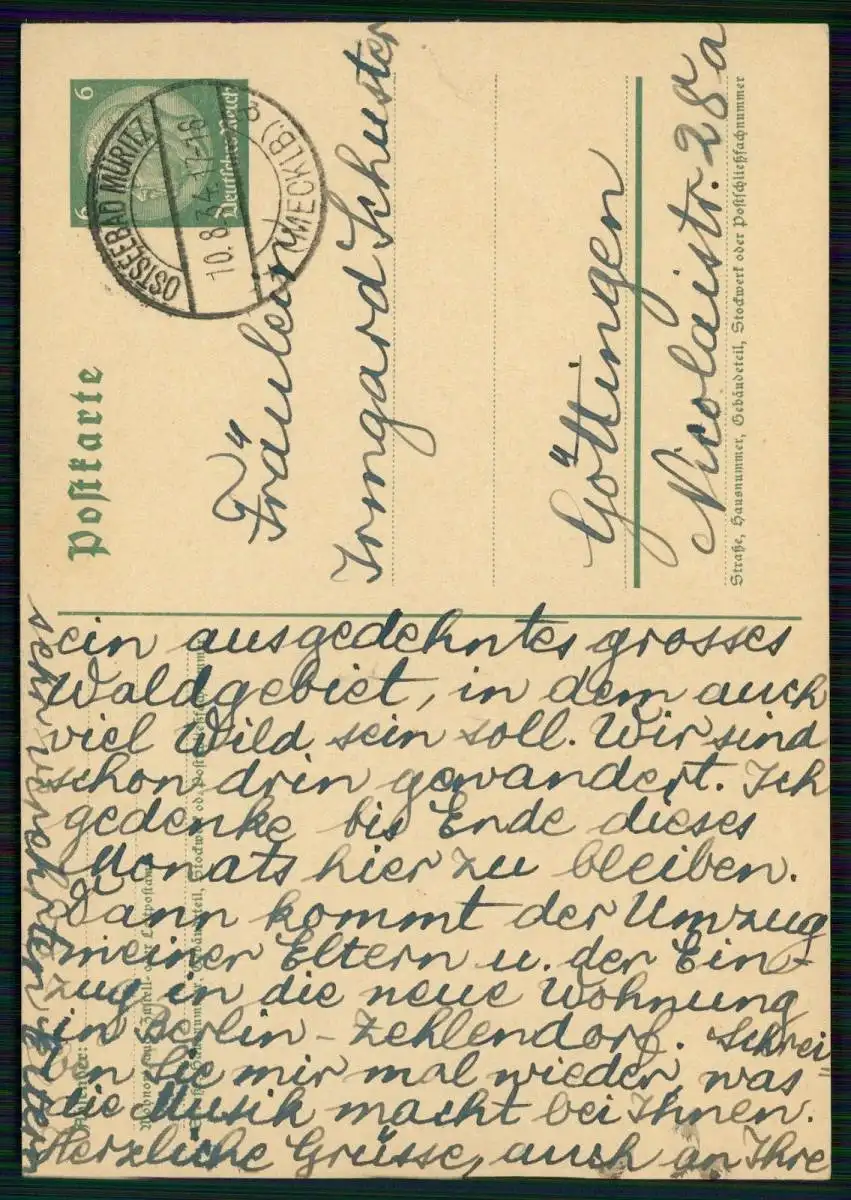 Postkarte
6
6
Deutsches Reich
OSTSEEBAD MÜRITZ
10.8.34.17-18
(MECKLB.)
Fräulein
Irmgard Schuster
Göttingen
Nicolaistr. 28a
Straße, Hausnummer, Gebäudeteil, Stockwerk oder Postschließfachnummer
ein ausgedehntes grosses
Waldgebiet, in dem auch
viel Wild sein soll. Wir sind
schon drin gewandert. Ich
gedenke bis Ende dieses
Monats hier zu bleiben.
Dann kommt der Umzug
meiner Eltern u. der Ein-
zug in die neue Wohnung
in Berlin-Zehlendorf. Schrei-
ben Sie mir mal wieder, was
die Musik macht bei Ihnen.
Herzliche Grüsse, auch an Ihre
sehr verehrten Eltern
Absender:
Wohnort, auch Zustell- oder Leitpostamt
Straße, Hausnummer, Gebäudeteil, Stockwerk od. Postschließfachnummer